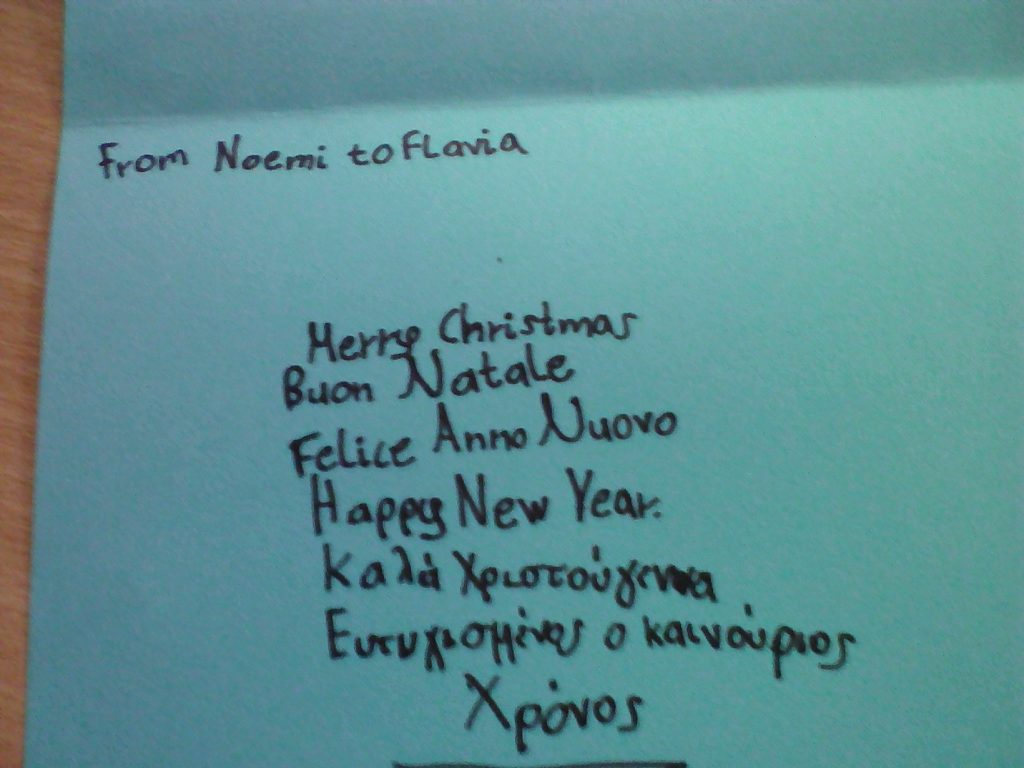 From Noemi to Flavia
Merry Christmas
Buon Natale
Felice Anno Nuovo
Happy New Year.
Καλά Χριστούγεννα
Ευτυχισμένος ο καινούριος
Χρόνος